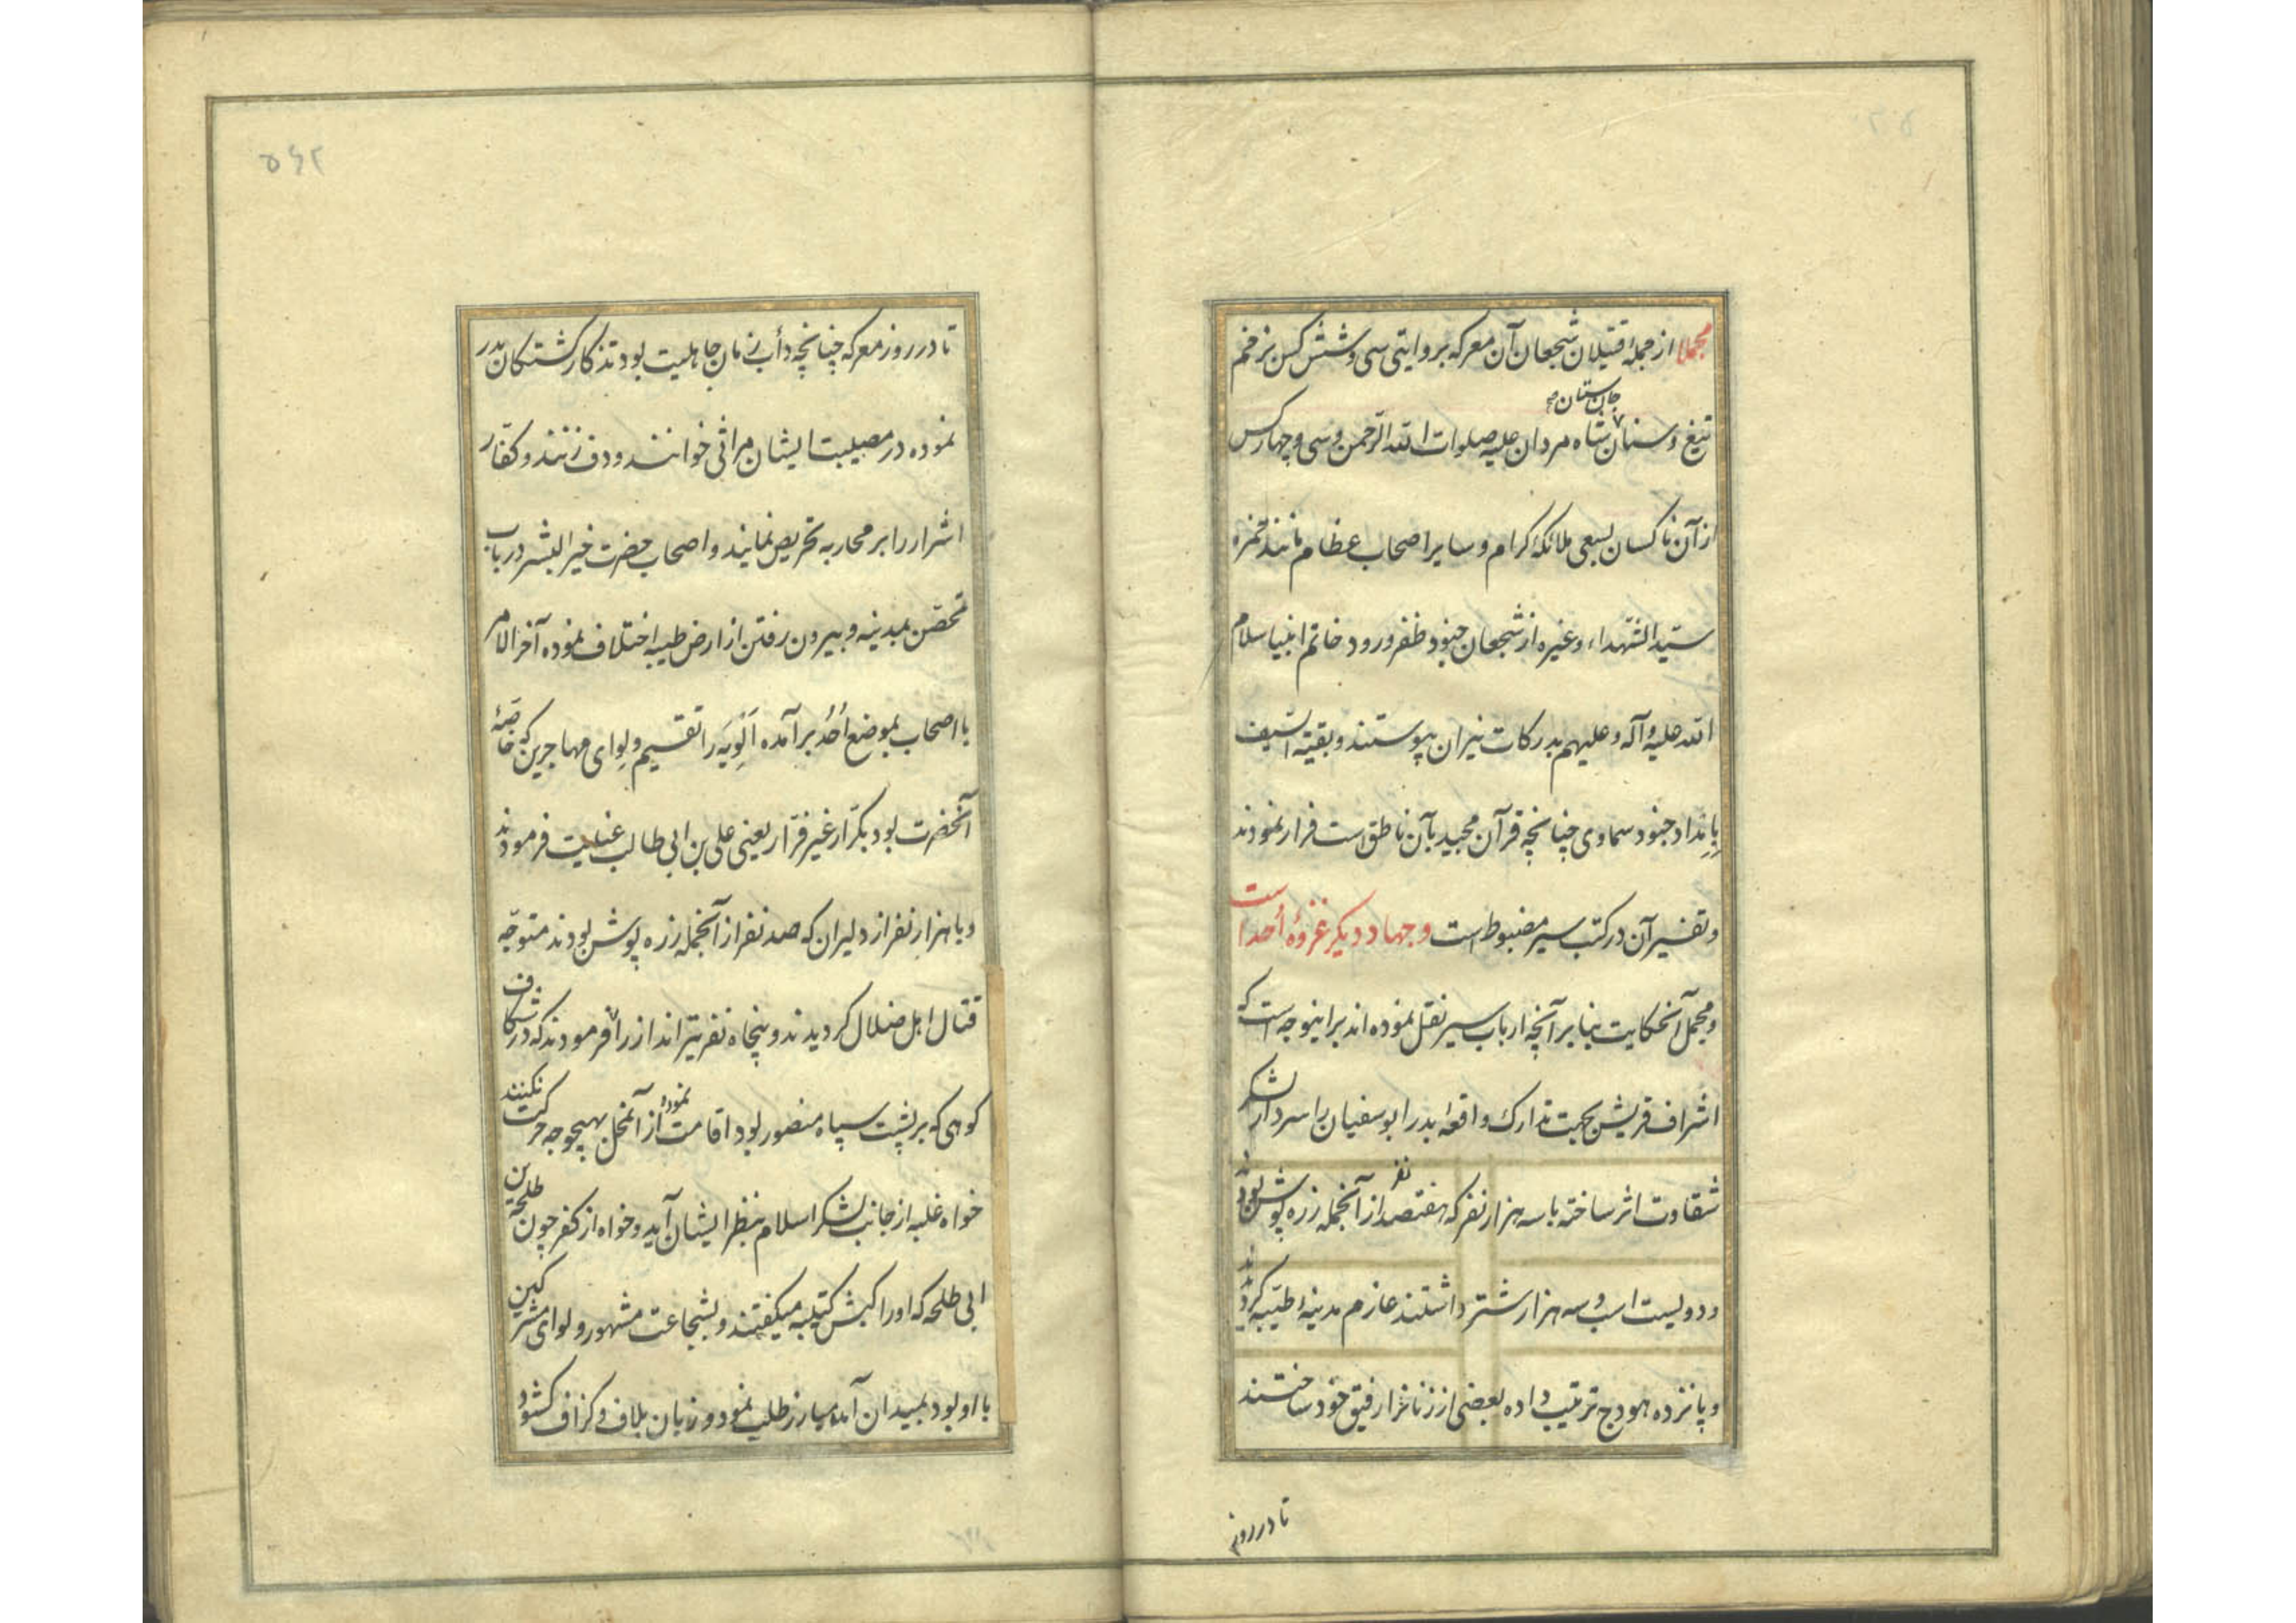 مجملا از جملهٔ قتیلان شجعان آن معرکه بروایتی سی و شش کس بزخم
جان ستان صح
تیغ و سنان شاه مردان علیه صلوات الله الرّحمن و سی و چهار کس
از آن ناکسان بسعی ملائکهٔ کرام و سایر اصحاب عظام مانند حمزه
سیّد الشّهداء و غیره از شجعان جنود ظفر ورود خاتم انبیا سلام
الله علیه و آله و علیهم بدرکات نیران پیوستند و بقیّة السّیف
بِاِمداد جنود سماوی چنانچه قرآن مجید بآن ناطق است فرار نمودند
و تفسیر آن در کتب سیر مضبوط است و جهاد دیکر غزوهٔ اُحد است
و مجمل آنحکایت بنابر آنچه ارباب سیر نقل نموده اند براینوجه است که
اشراف قریش بجهت تدارک واقعهٔ بدر ابوسفیان را سردار لشکر
شقاوت اثر ساخته با سه هزار نفر که هفتصد نفر از آنجمله زره پوش بودند
و دویست اسب و سه هزار شتر داشتند عازم مدینهٔ طیّبه کردیدند
و پانزده هودج ترتیب داده بعضی از زنانرا رفیق خود ساختند
تا در روز
۵۶۲
تا در روز معرکه چنانچه دأب زمان جاهلیت بود تذکار کشتکان بدر
نموده در مصیبت ایشان مراثی خوانند و دف زنند و کفّار
اشرار را بر محاربه تحریص نمایند و اصحاب حضرت خیر البشر در باب
تحصّن بمدینه و بیرون رفتن از ارض طیبه اختلاف نموده آخر الامر
با اصحاب بموضع اُحُد بر آمده اَلْوِیَه را تقسیم و لِوای مهاجرین که خاصّهٔ
آنحضرت بود بکرّار غیر فرّار یعنی علی بن ابی طالب عنایت فرمودند
و با هزار نفر از دلیران که صد نفر از آنجمله زره پوش بودند متوجّه
قتال اهل ضلال کردیدند و پنجاه نفر تیرانداز را فرمودند که در شکاف
کوهی که بر پشت سپاه منصور بود اقامت نموده از آنمحل بهیچوجه حرکت نکنند
خواه غلبه از جانب لشکر اسلام بنظر ایشان آید و خواه از کفر چون طلحة بن
ابی طلحه که او را کبش کتیبه میکفتند و بشجاعت مشهور و لوای مشرکین
با او بود بمیدان آمده مبارز طلب نمود و زبان بلاف و کزاف کشود